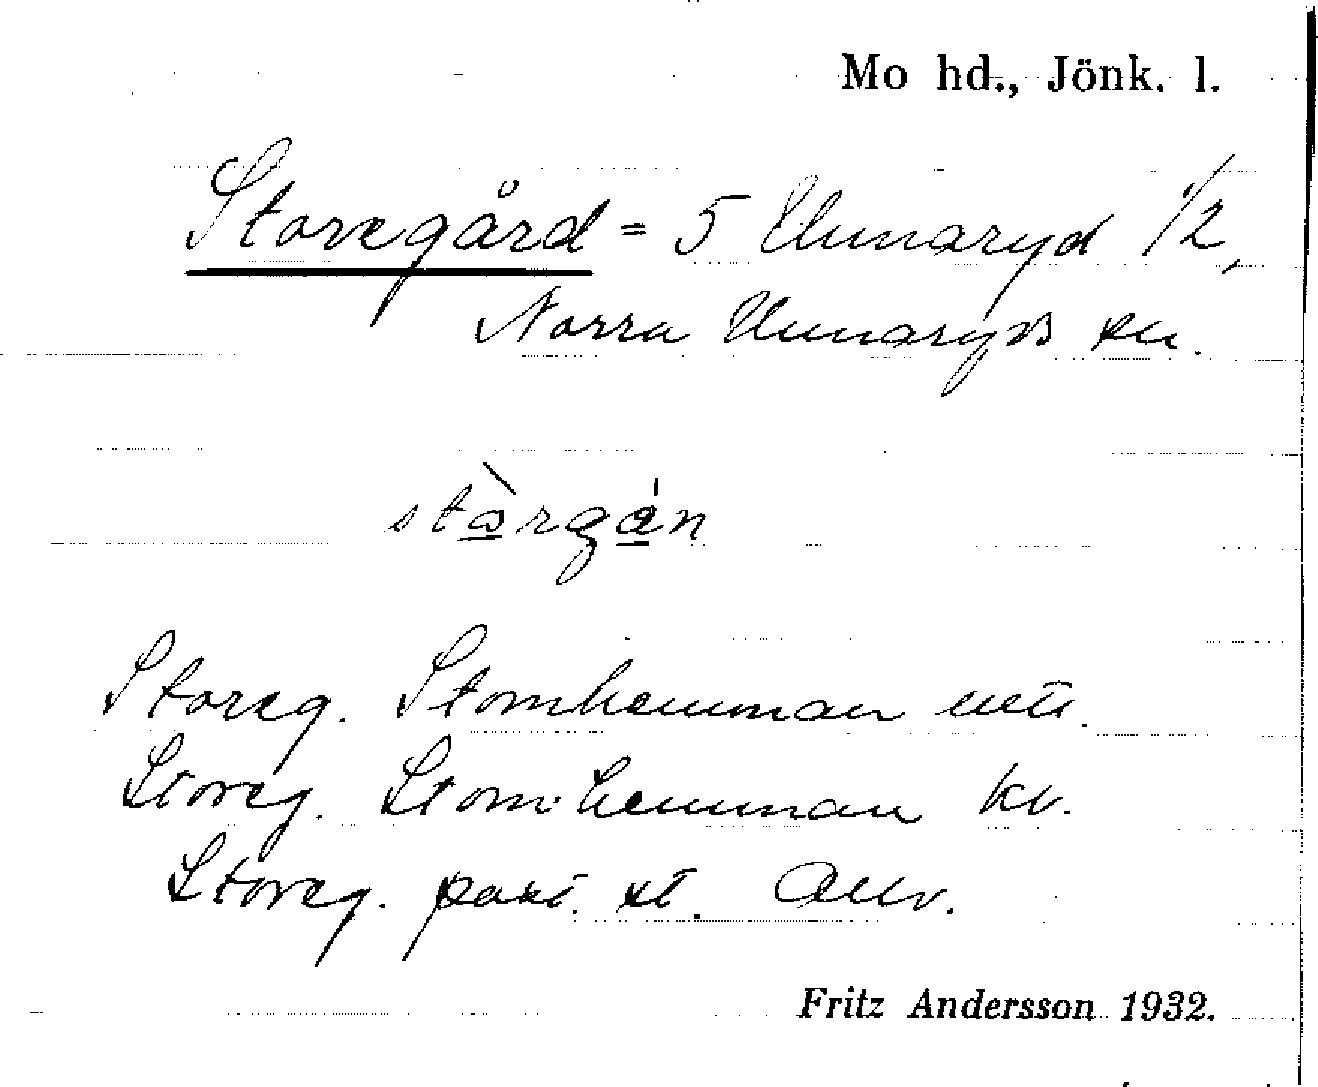 Mo hd., Jönk. l.
Storegård = 5 Unnaryd 1/2,
Norra Unnaryds sn.
stòrgán
Storeg. Stomhemman
Storeg. Stomhemman kv.
Storeg. past. st. Allv.
Fritz Andersson 1932.